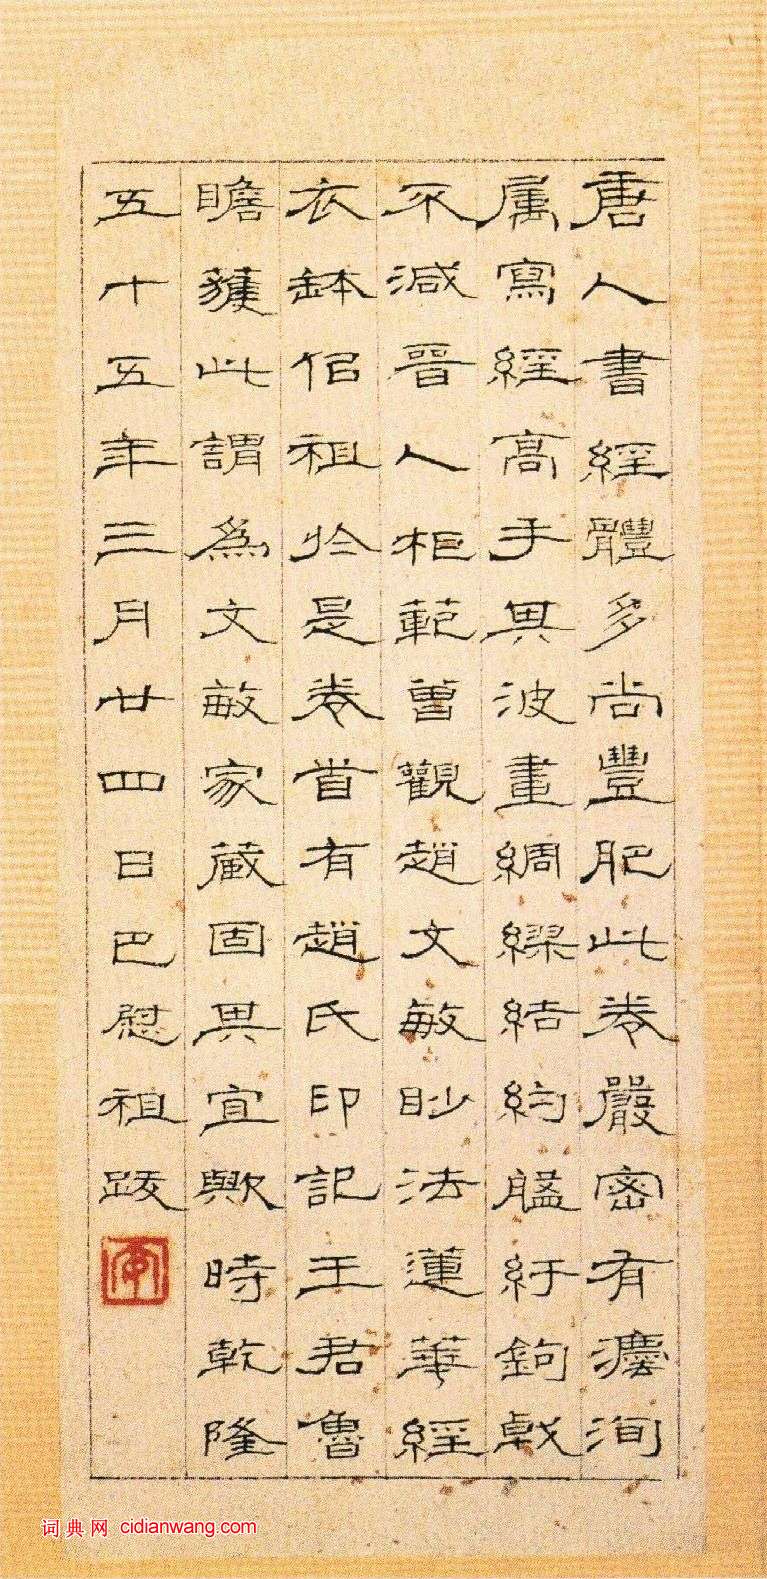 唐人書經體多尚豐肥此卷嚴密有法洵
属寫經高手其波畫綢繆結約艋紆鉤戟
不減晉人柜範曾觀趙文敏眇法蓮華經
衣鉢侣祖於是卷首有趙氏印記王君魯
瞻獲此謂為文敏家蔵固其宜歟時乾隆
五十五年三月廿四日巴慰祖跋
词典网 cidianwang.com